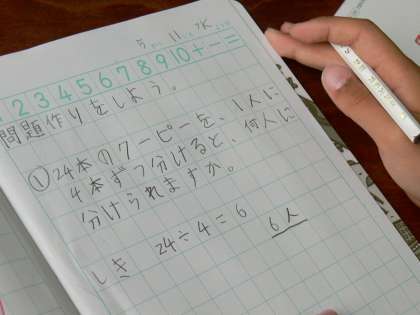 5 11 水
1 2 3 4 5 6 7 8 9 10 + - =
問題作りをしよう。
① 24本のクーピーを、1人に
4本ずつ分けると、何人に
分けられますか。
しき 24÷4=6 6人